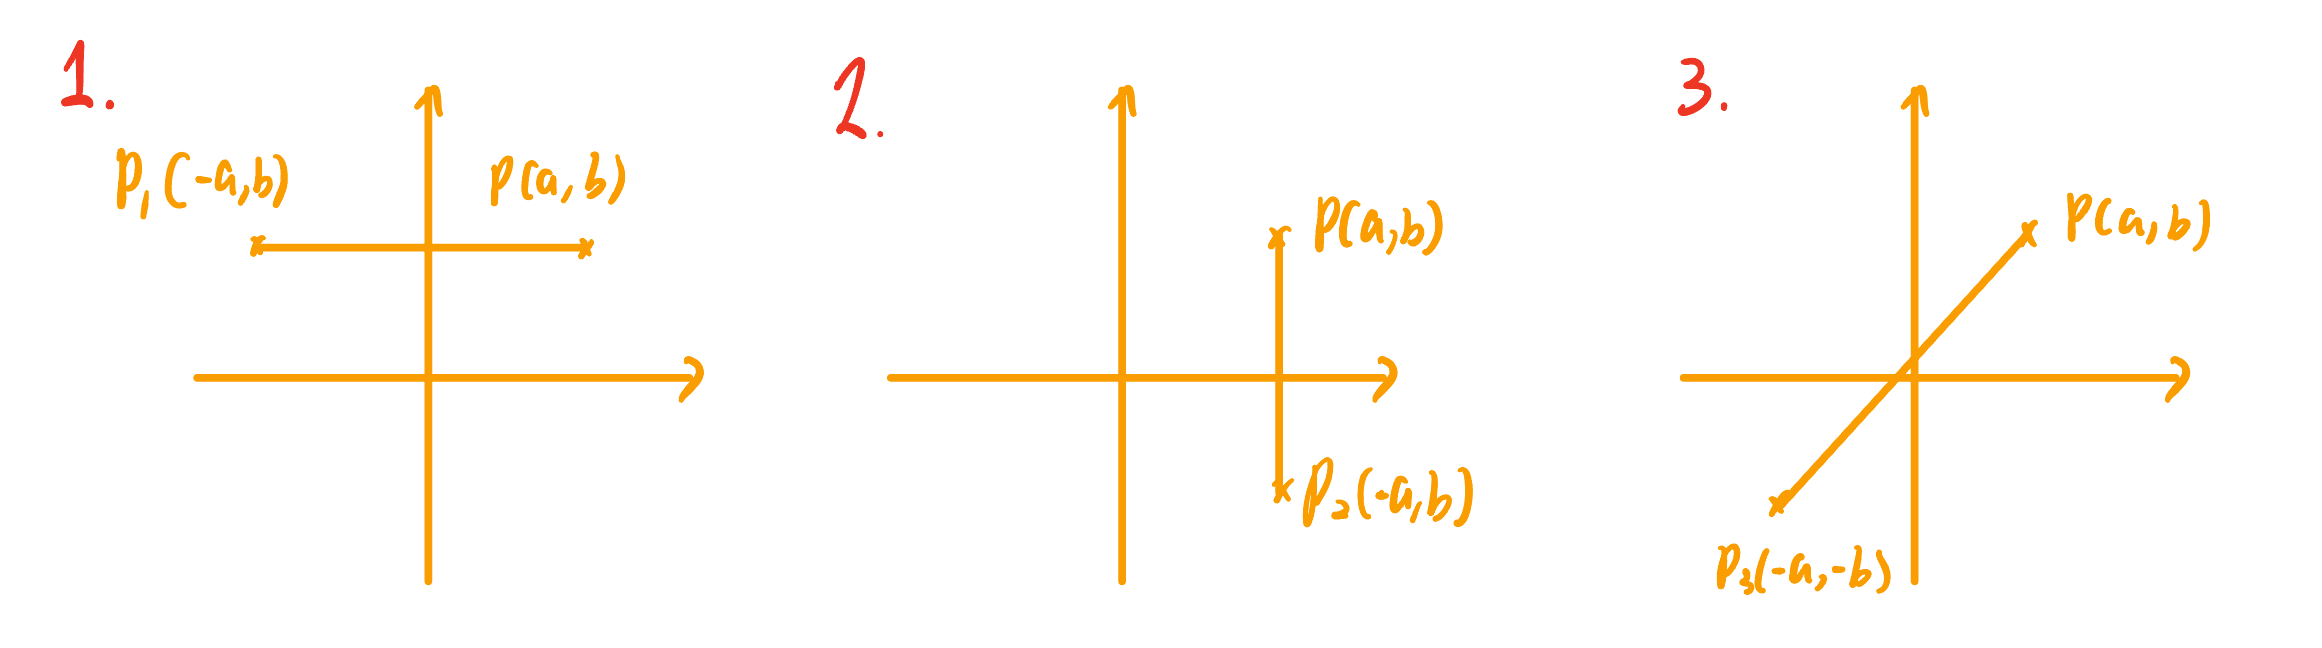 1.
P₁(-a,b)
P(a,b)
2.
P(a,b)
P₂(-a,b)
3.
P(a,b)
P₃(-a,-b)